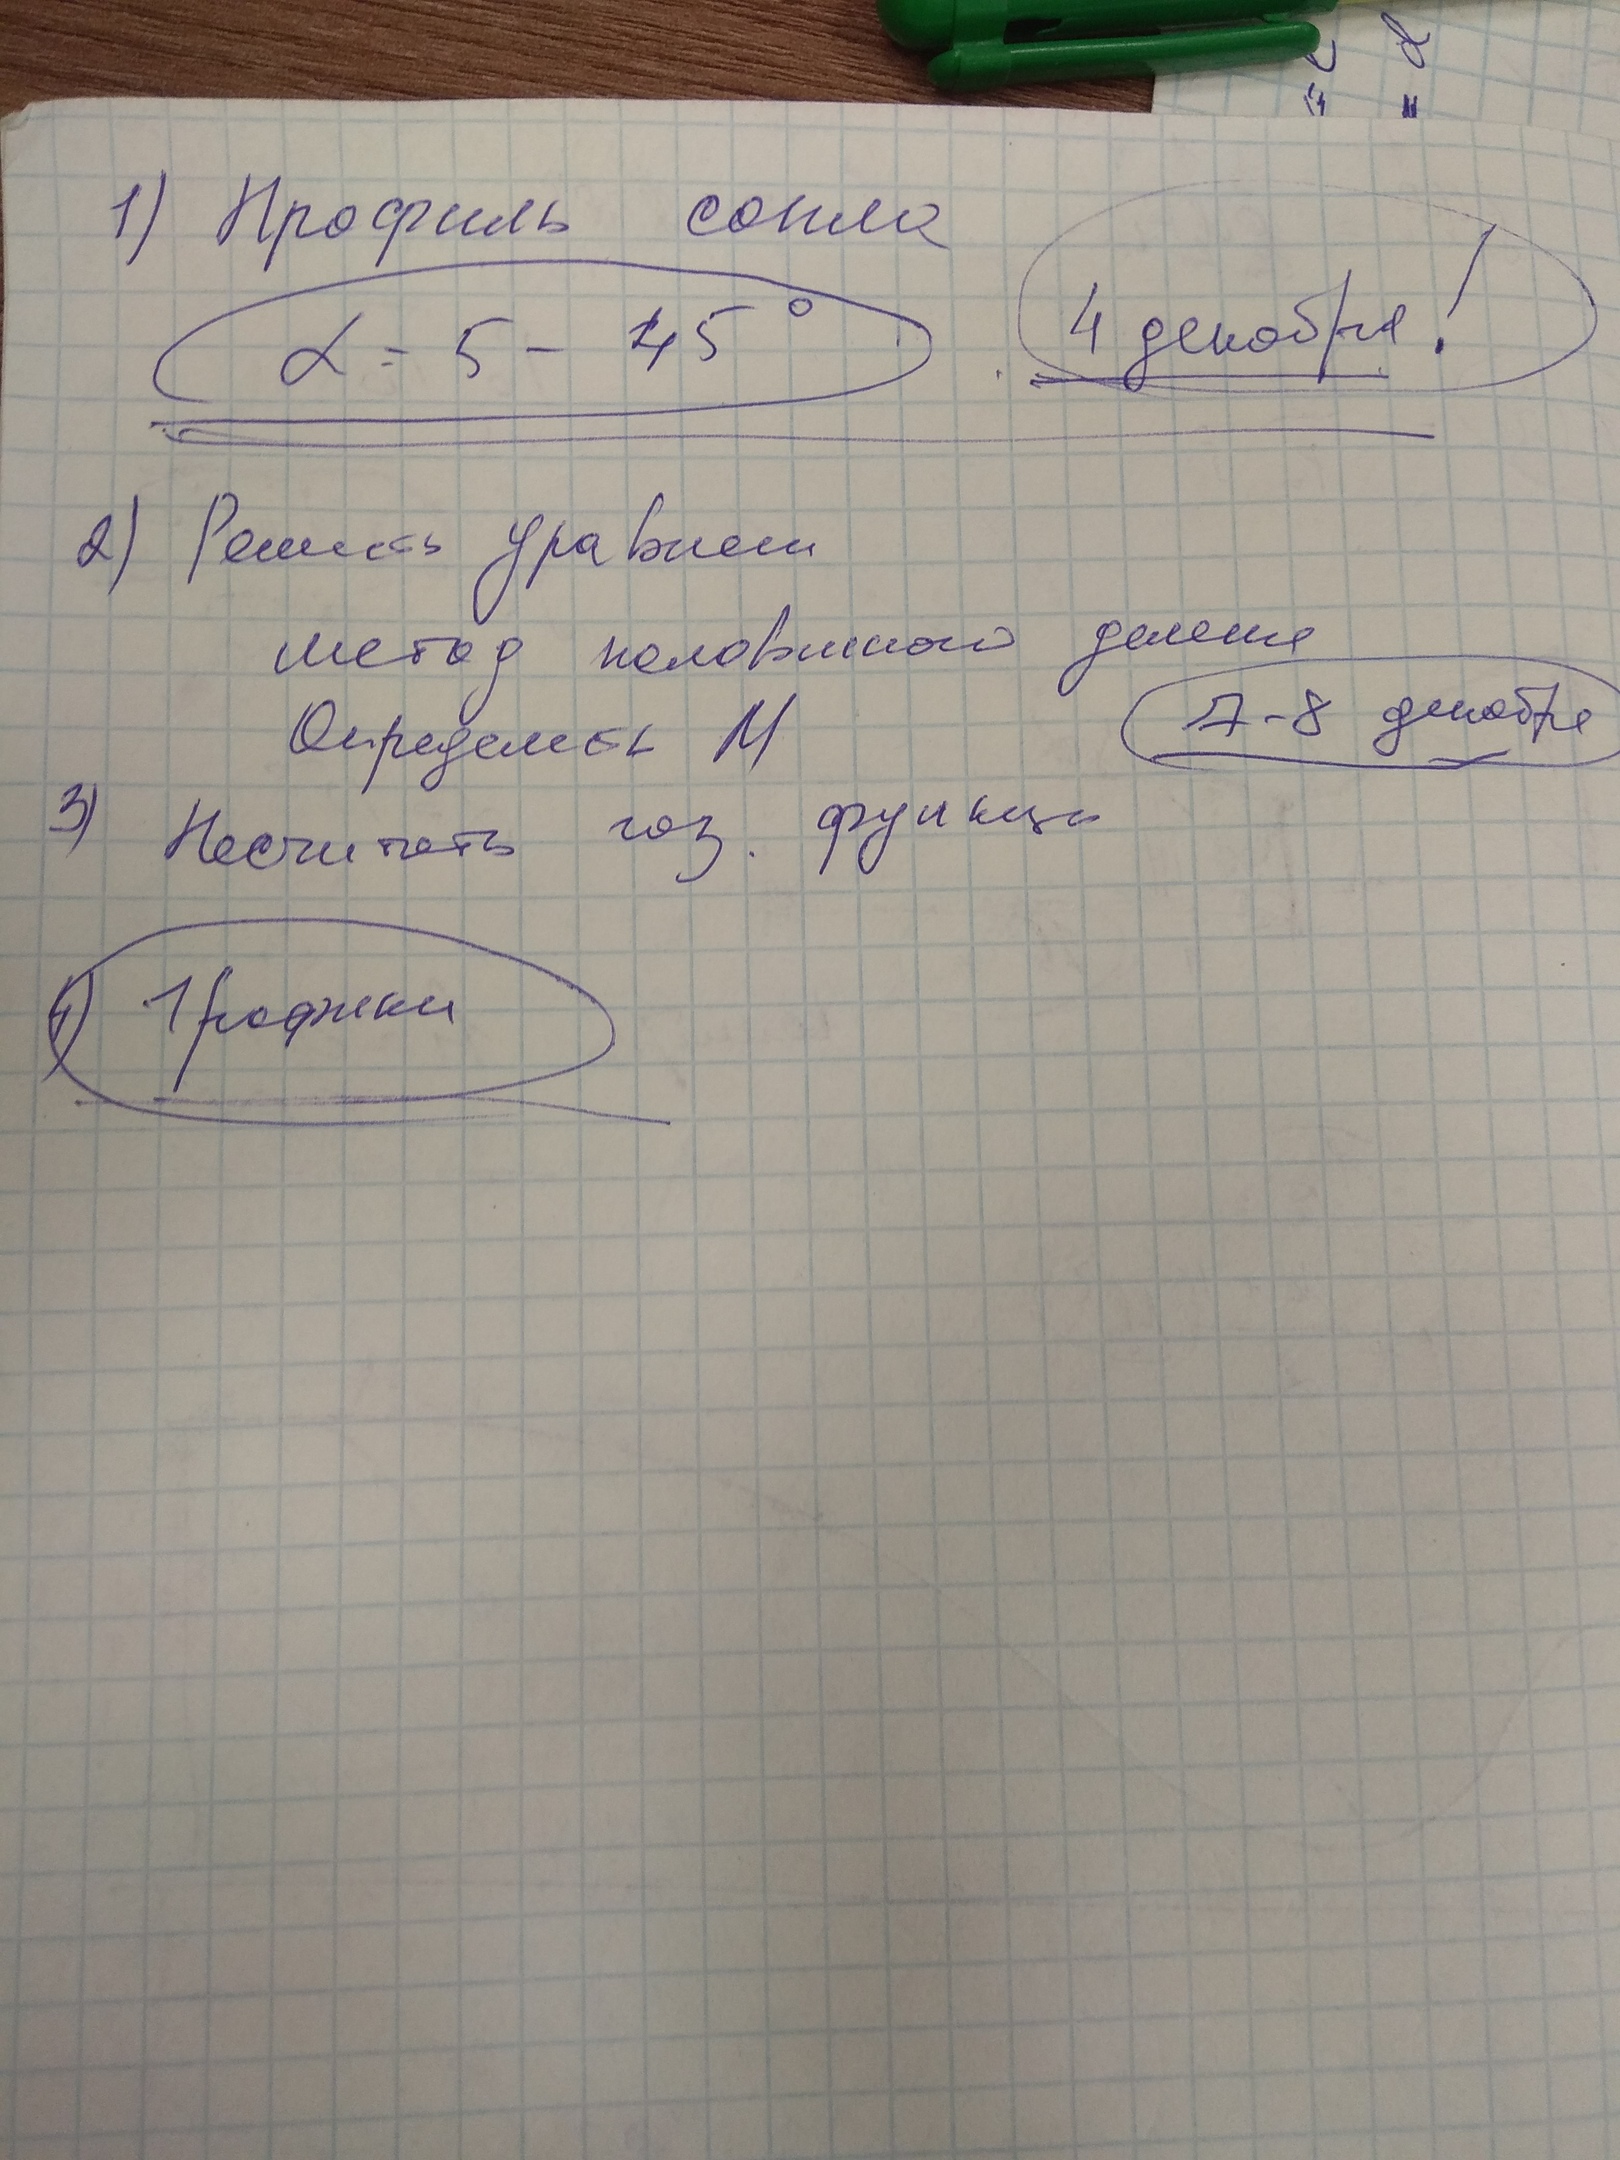 1) Профиль сопла
α = 5 - 45°
4 декабря!
2) Решить уравнен
метод половинного деления
Определить М
7-8 декабря
3) Посчитать газ. функции
4) Графики